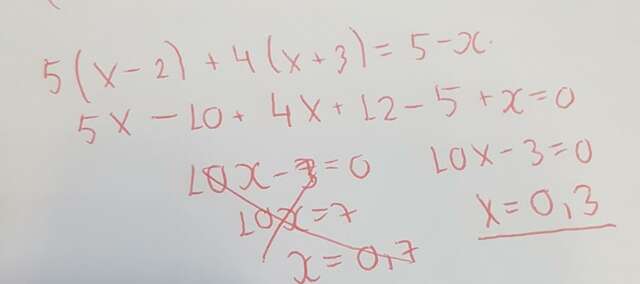 5(x-2)+4(x+3)=5-x.
5x-10+4x+12-5+x=0
10x-7=0
10x=7
x=0,7
10x-3=0
x=0,3